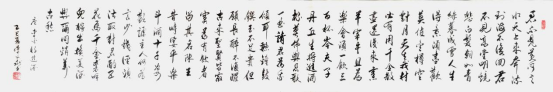 君不見黃河之
水天上來奔流
到海不復回君
不見高堂明鏡
悲白髮朝如青
絲暮成雪人生
得意須盡歡
莫使金樽空
對月天生我材
必有用千金散
盡還復來烹
羊宰牛且為
樂會須一飲三
百杯岑夫子
丹丘生將進酒
杯莫停與君歌
一曲請君為我
傾耳聽鐘鼓
饌玉不足貴但
願長醉不願醒
古來聖賢皆寂
寞惟有飲者
留其名陳王
昔時宴平樂
斗酒十千恣歡
謔主人何為
言少錢徑須
沽取對君酌五
花馬千金裘呼
兒將出換美酒
與爾同銷萬
古愁